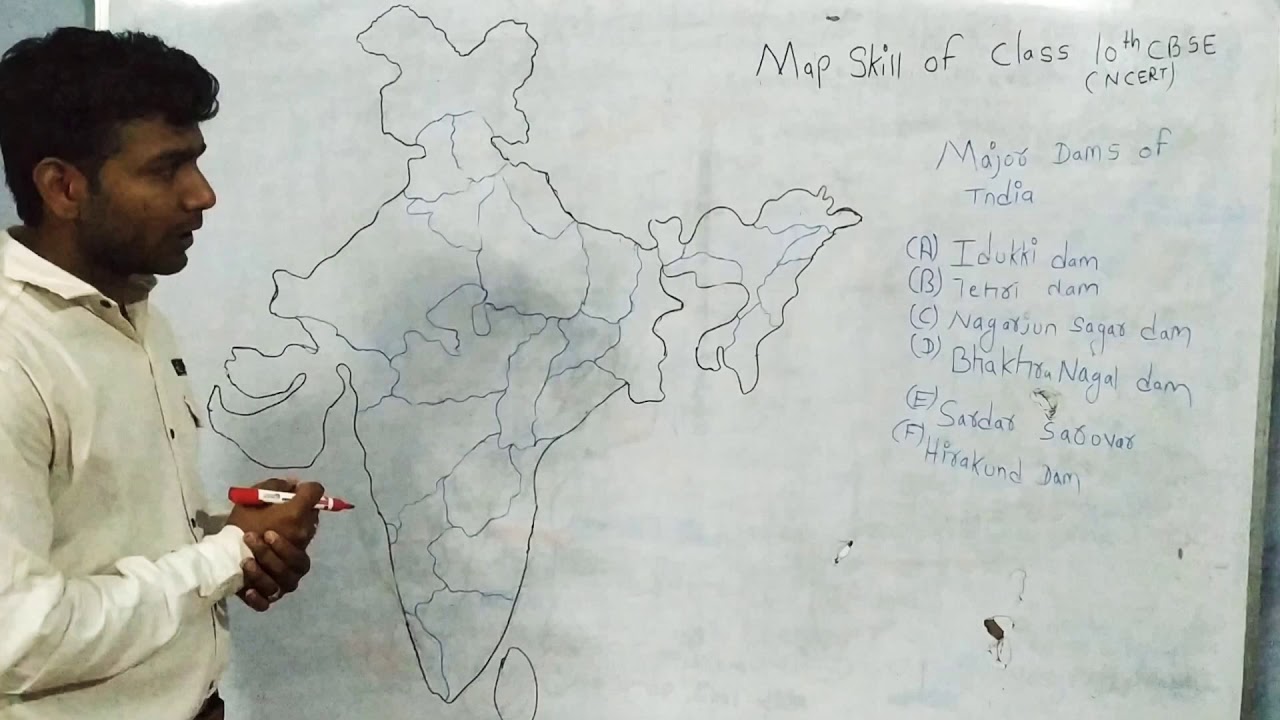 Map Skill of Class 10th CBSE
(NCERT)
Major Dams of
India
(A) Idukki dam
(B) Tehri dam
(C) Nagarjun Sagar dam
(D) Bhakhra Nagal dam
(E) Sardar Sarovar
(F) Hirakund Dam